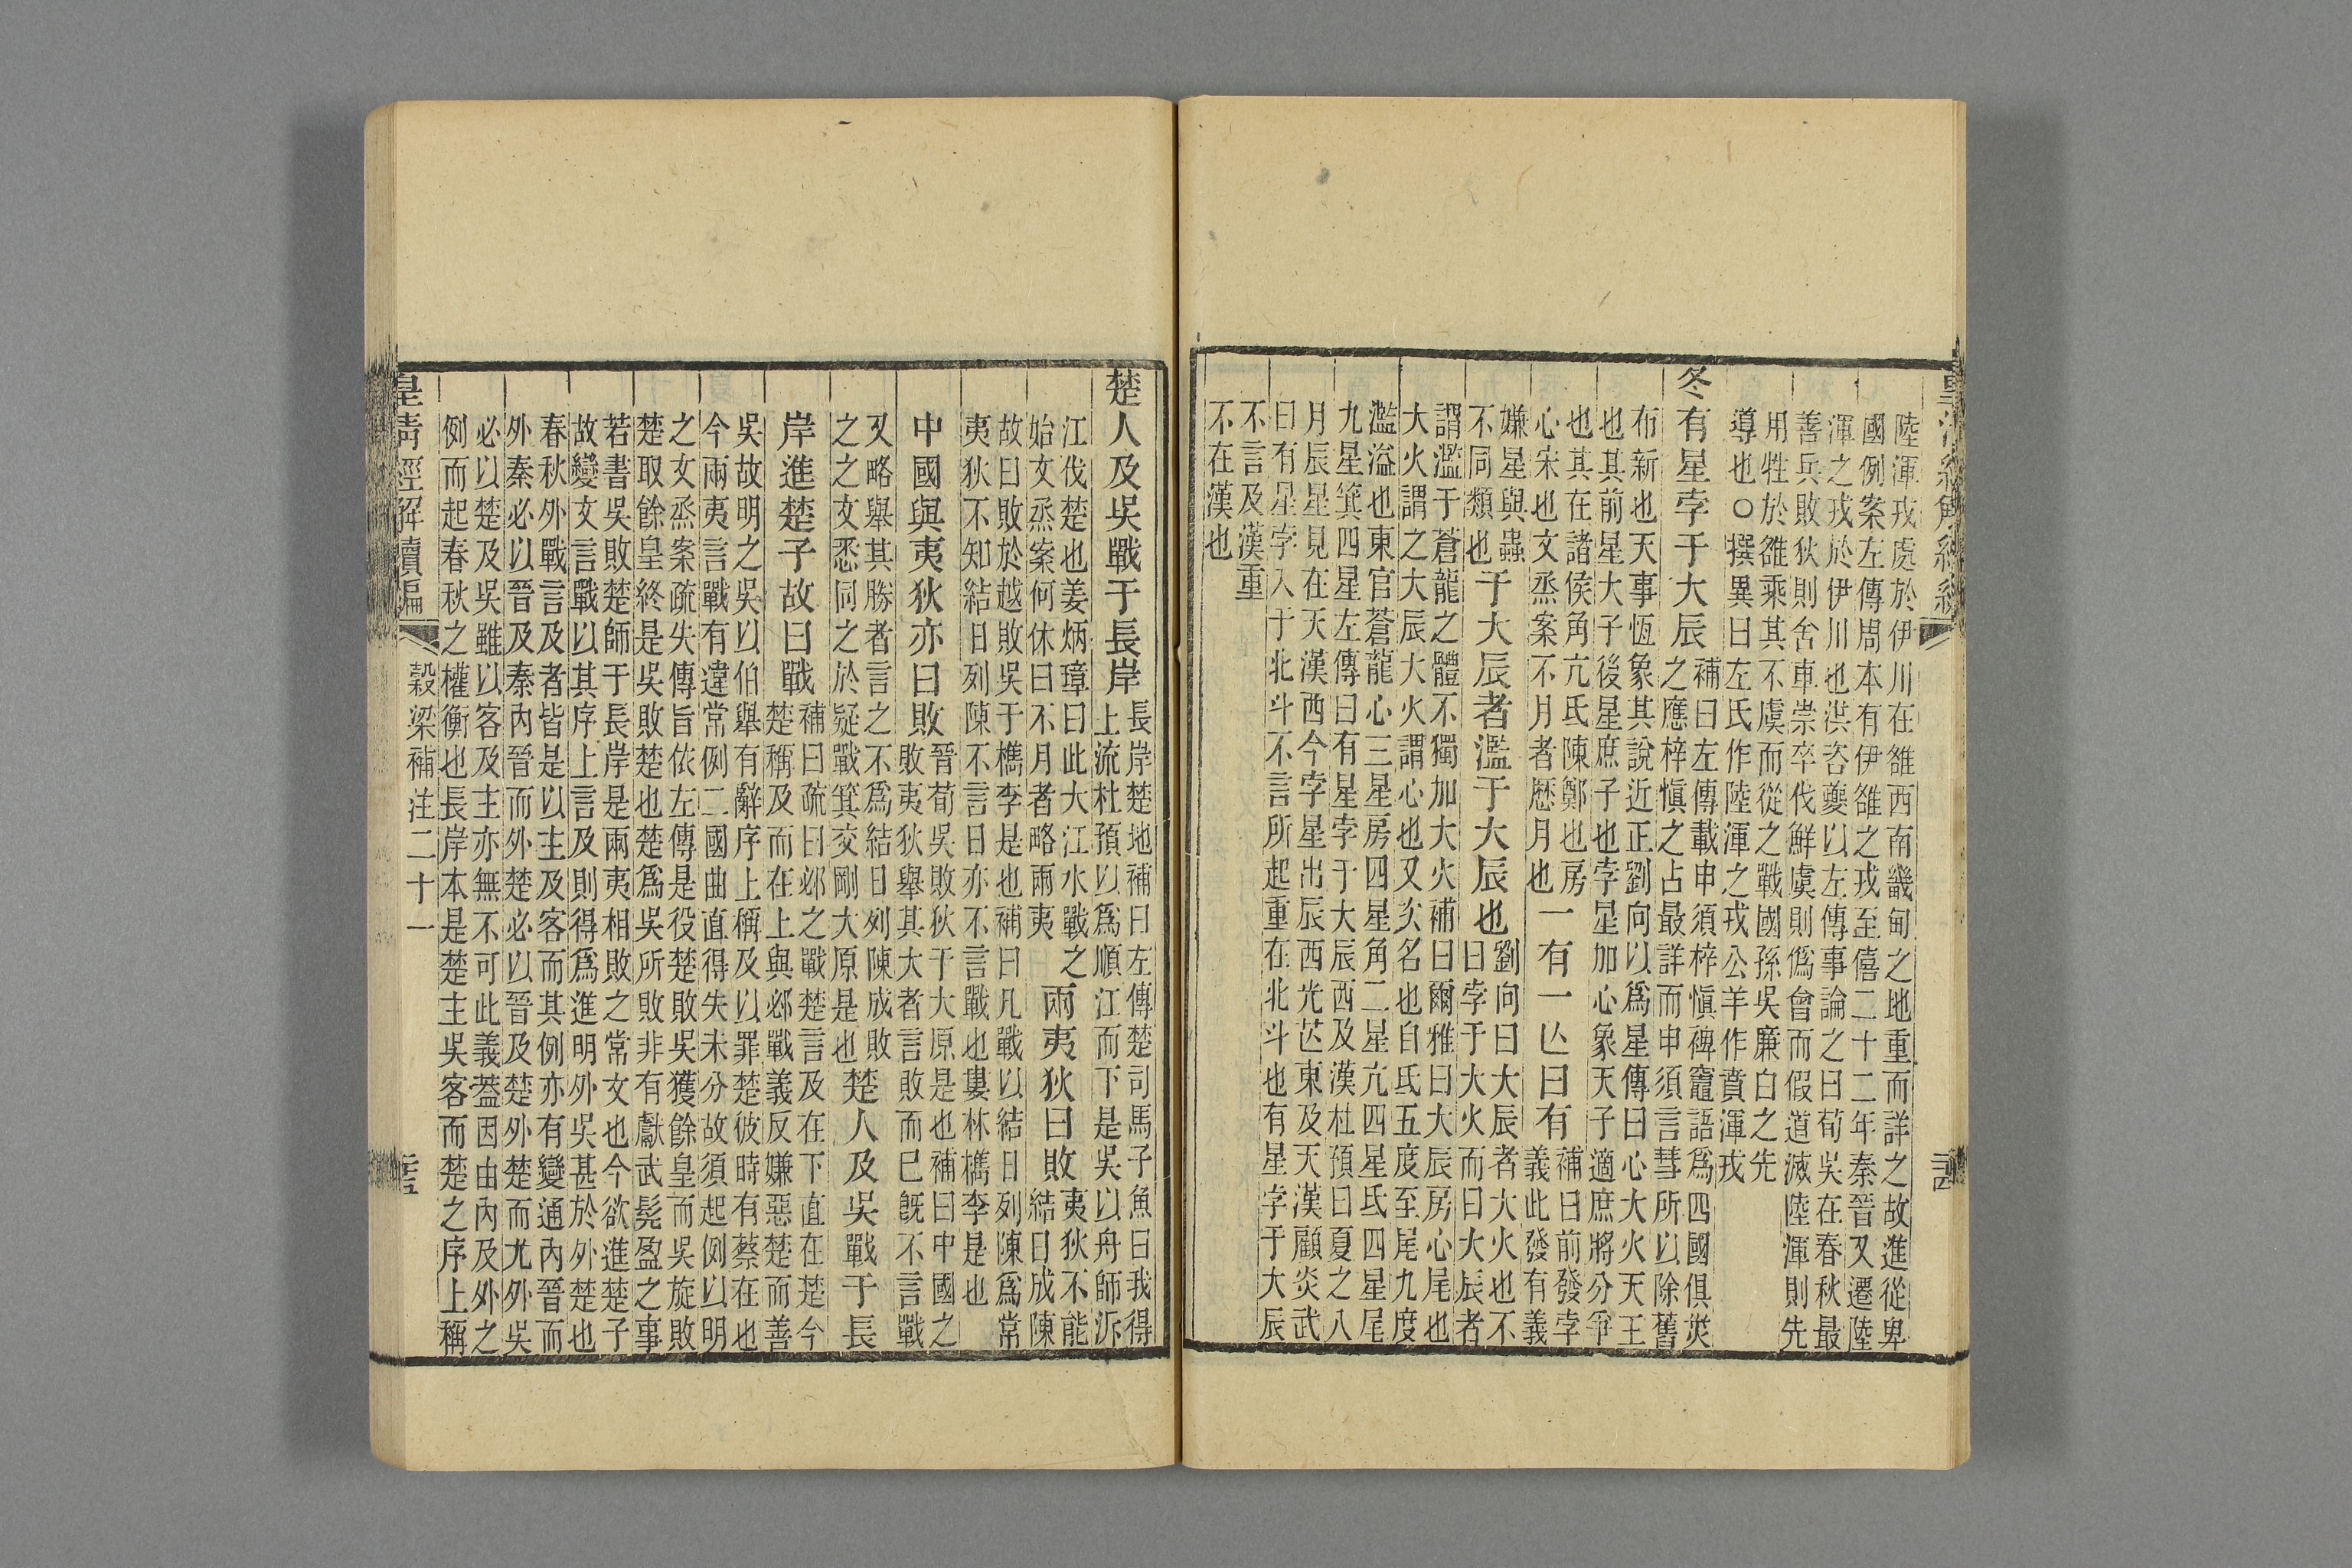 陸渾戎處於伊川在雒西南畿甸之地重而詳之故進從卑
國例案左傳周本有伊雒之戎至僖二十二年秦晉又遷陸
渾之戎於伊川也洪咨夔以左傳事論之曰荀吳在春秋最
善兵敗狄則舍車崇卒伐鮮虞則僞會而假道滅陸渾則先
用牲於雒乘其不虞而從之戰國孫吳廉白之先
導也○撰異曰左氏作陸渾之戎公羊作賁渾戎
冬有星孛于大辰
補曰左傳載申須梓愼裨竈語爲四國俱災
之應梓愼之占最詳而申須言彗所以除舊
布新也天事恆象其說近正劉向以爲星傳曰心大火天王
也其前星大子後星庶子也孛星加心象天子適庶將分爭
也其在諸侯角亢氐陳鄭也房
心宋也文烝案不月者歷月也
一有一亾曰有
補曰前發孛
義此發有義
嫌星與蟲
不同類也
于大辰者濫于大辰也
劉向曰大辰者大火也不
曰孛于大火而曰大辰者
謂濫于蒼龍之體不獨加大火補曰爾雅曰大辰房心尾也
大火謂之大辰大火謂心也又次名也自氐五度至尾九度
濫溢也東官蒼龍心三星房四星角二星亢四星氐四星尾
九星箕四星左傳曰有星孛于大辰西及漢杜預曰夏之八
月辰星見在天漢西今孛星出辰西光芒東及天漢顧炎武
曰有星孛入于北斗不言所起重在北斗也有星孛于大辰
不言及漢重
不在漢也
楚人及吳戰于長岸
長岸楚地補曰左傳楚司馬子魚曰我得
上流杜預以爲順江而下是吳以舟師泝
江伐楚也姜炳璋曰此大江水戰之
始文烝案何休曰不月者略兩夷
兩夷狄曰敗
夷狄不能
結日成陳
故曰敗於越敗吳于檇李是也補曰凡戰以結日列陳爲常
夷狄不知結日列陳不言日亦不言戰也婁林檇李是也
中國與夷狄亦曰敗
晉荀吳敗狄于大原是也補曰中國之
敗夷狄舉其大者言敗而已旣不言戰
又略舉其勝者言之不爲結日列陳成敗
之之文悉同之於疑戰箕交剛大原是也
楚人及吳戰于長
岸進楚子故曰戰
補曰疏曰邲之戰楚言及在下直在楚今
楚稱及而在上與邲戰義反嫌惡楚而善
吳故明之吳以伯舉有辭序上稱及以罪楚彼時有蔡在也
今兩夷言戰有違常例二國曲直得失未分故須起例以明
之文烝案疏失傳旨依左傳是役楚敗吳獲餘皇而吳旋敗
楚取餘皇終是吳敗楚也楚爲吳所敗非有獻武髡盈之事
若書吳敗楚師于長岸是兩夷相敗之常文也今欲進楚子
故變文言戰以其序上言及則得爲進明外吳甚於外楚也
春秋外戰言及者皆是以主及客而其例亦有變通內晉而
外秦必以晉及秦內晉而外楚必以晉及楚外楚而尤外吳
必以楚及吳雖以客及主亦無不可此義蓋因由內及外之
例而起春秋之權衡也長岸本是楚主吳客而楚之序上稱
皇清經解續編
穀梁補注二十一